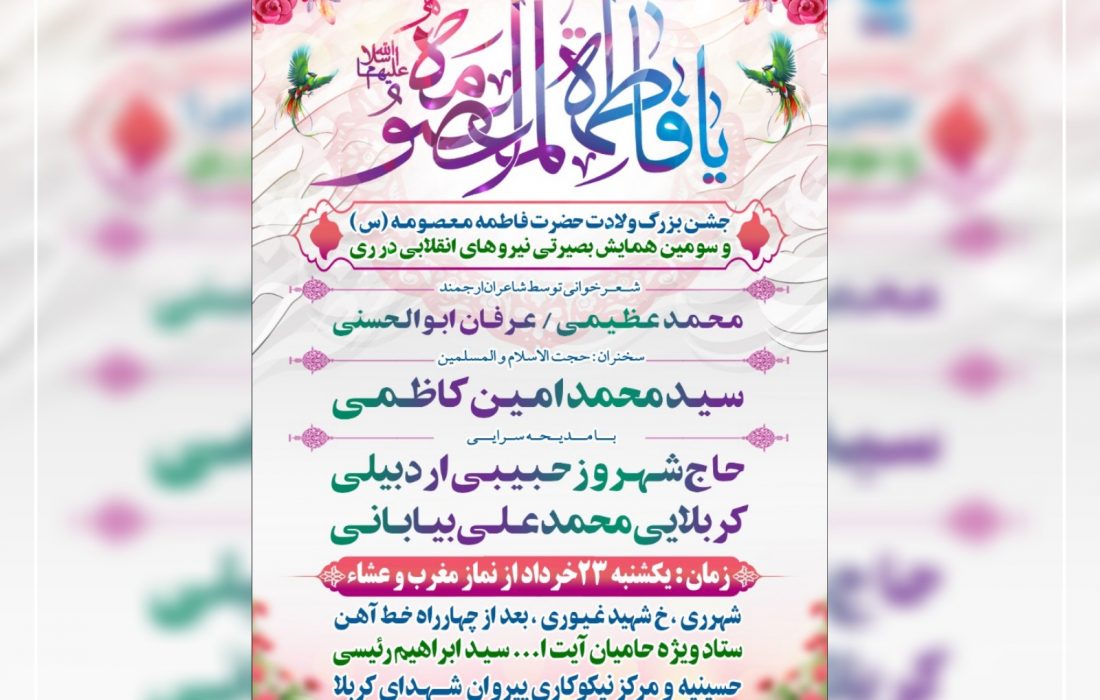 یا فاطمة المعصومه
سلام الله علیها
جشن بزرگ ولادت حضرت فاطمه معصومه (س)
و سومین همایش بصیرتی نیروهای انقلابی در ری
شعرخوانی توسط شاعران ارجمند
محمد عظیمی / عرفان ابوالحسنی
سخنران: حجت الاسلام والمسلمین
سید محمد امین کاظمی
با مدیحه سرایی
حاج شهروز حبیبی اردبیلی
کربلایی محمدعلی بیابانی
زمان: یکشنبه ۲۳ خرداد از نماز مغرب و عشاء
شهرری، خ شهید غیوری، بعد از چهارراه خط آهن
ستاد ویژه حامیان آیت ا... سید ابراهیم رئیسی
حسینیه و مرکز نیکوکاری پیروان شهدای کربلا